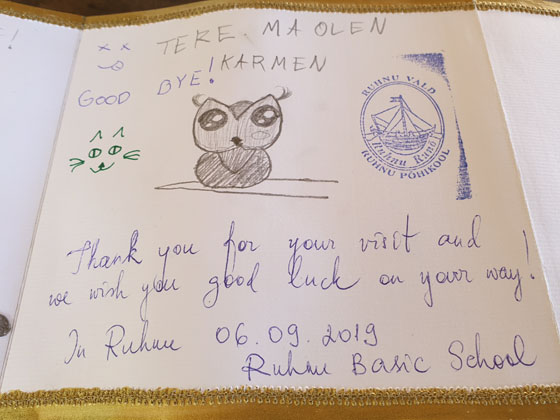 TERE MA OLEN
KARMEN!
GOOD BYE!
RUHNU VALD
Ruhnu Runö
RUHNU PÕHIKOOL
Thank you for your visit and
we wish you good luck on your way!
In Ruhnu 06.09.2019
Ruhnu Basic School